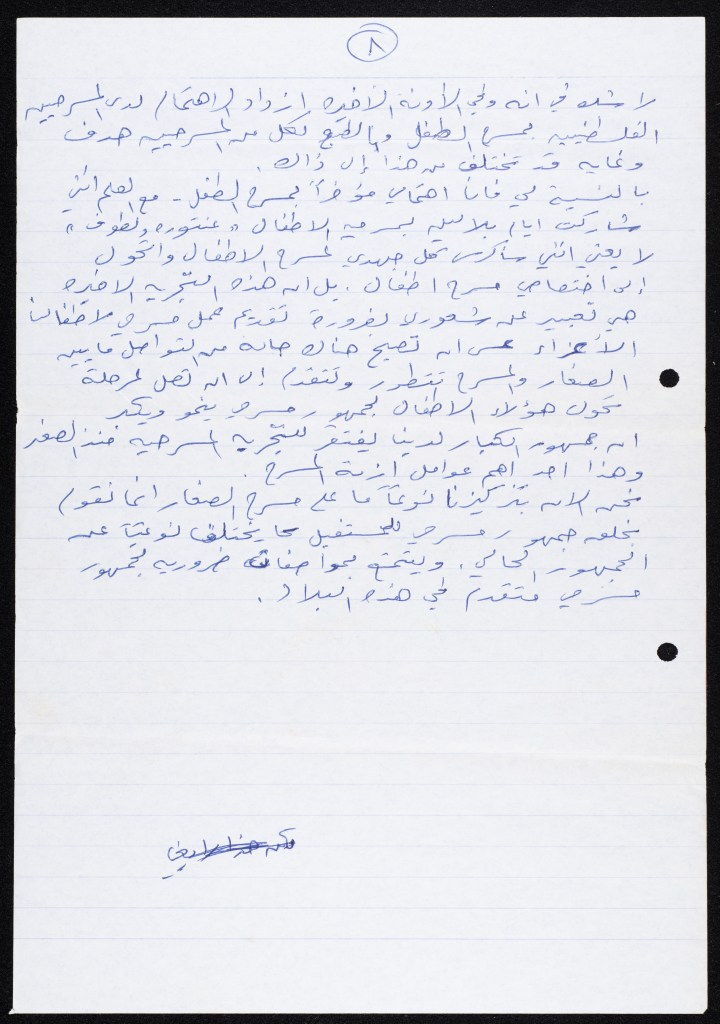 ٨
لا شك في انه وفي الآونة الأخيرة ازداد الاهتمام لدى المسرحيين
الفلسطينيين بمسرح الطفل وبالطبع لكل من المسرحيين هدف
وغايه قد تختلف من هذا إلى ذاك.
بالنسبة لي فان اهتمامي مؤخرًا بمسرح الطفل - مع العلم انني
شاركت ايام بلالين بمسرحية الاطفال "عنتوره ولطوف"
لا يعني انني سأكرس كل جهدي لمسرح الاطفال واتحول
إلى اختصاصي مسرح اطفال. بل ان هذه التجربه الاخيره
هي تعبير عن شعور لا بضرورة تقديم عمل مسرحي لاطفالنا
الأعزاء عسى ان تصبح هناك حاله من التواصل ما بين
الصغار والمسرح تتطور وتتقدم إلى ان تصل لمرحلة
تحول هؤلاء الاطفال لجمهور مسرحي ينمو ويكبر
ان جمهور الكبار لدينا يفتقر للتجربه المسرحيه منذ الصغر
وهذا احد اهم عوامل ازمة المسرح.
نحن الان بتركيزنا نوعًا ما على مسرح الصغار انما نقوم
بخلق جمهور مسرحي للمستقبل يختلف نوعيًا عن
الجمهور الحالي. ويتمتع بمواصفات ضروريه لجمهور
مسرحي متقدم في هذه البلاد.